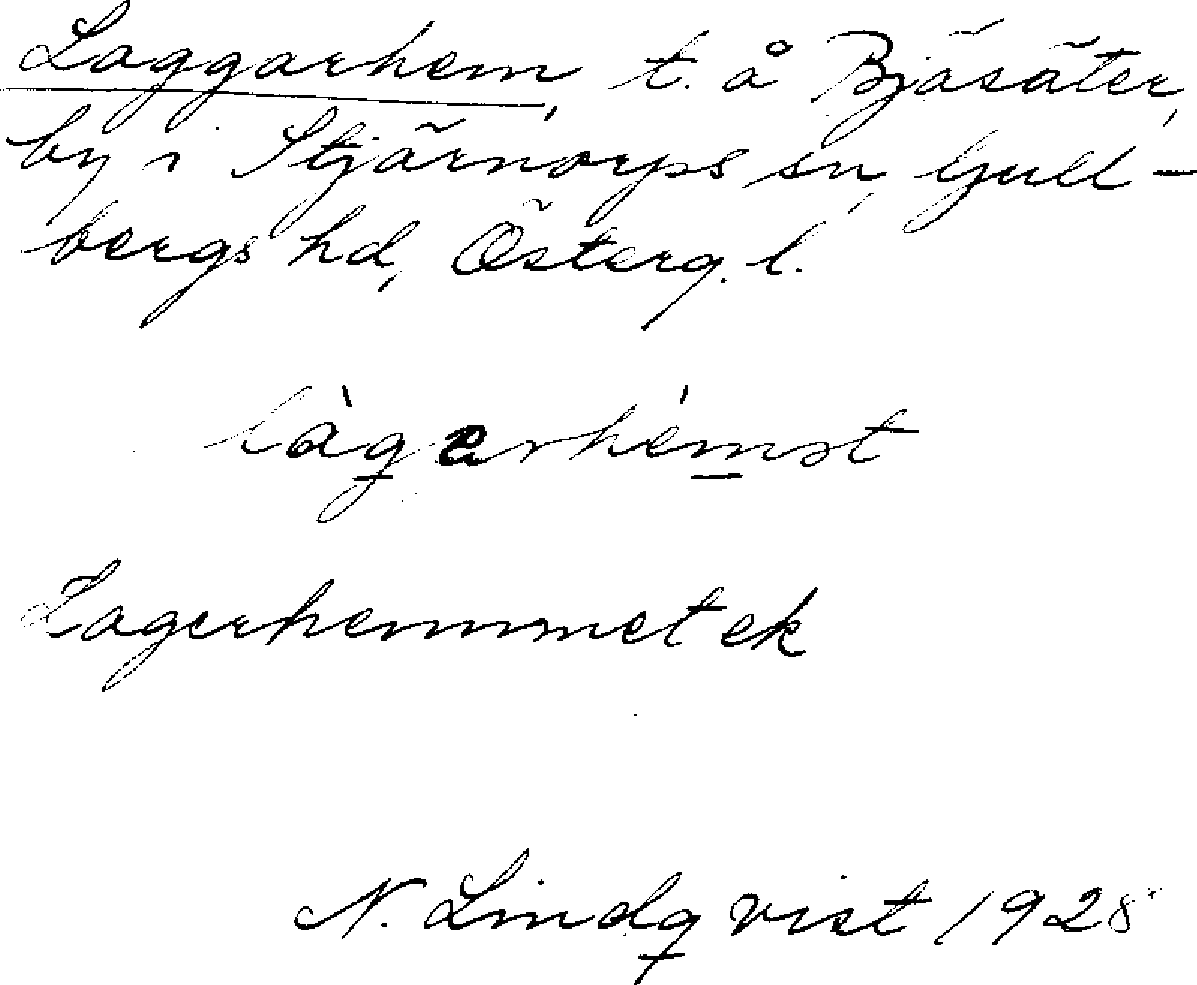 Laggarhem, t. å Bjäsäter,
by i Stjärnorps sn, Gull-
bergs hd, Österg. l.
làgarhémst
Lagerhemmet ek
N. Lindqvist 1928